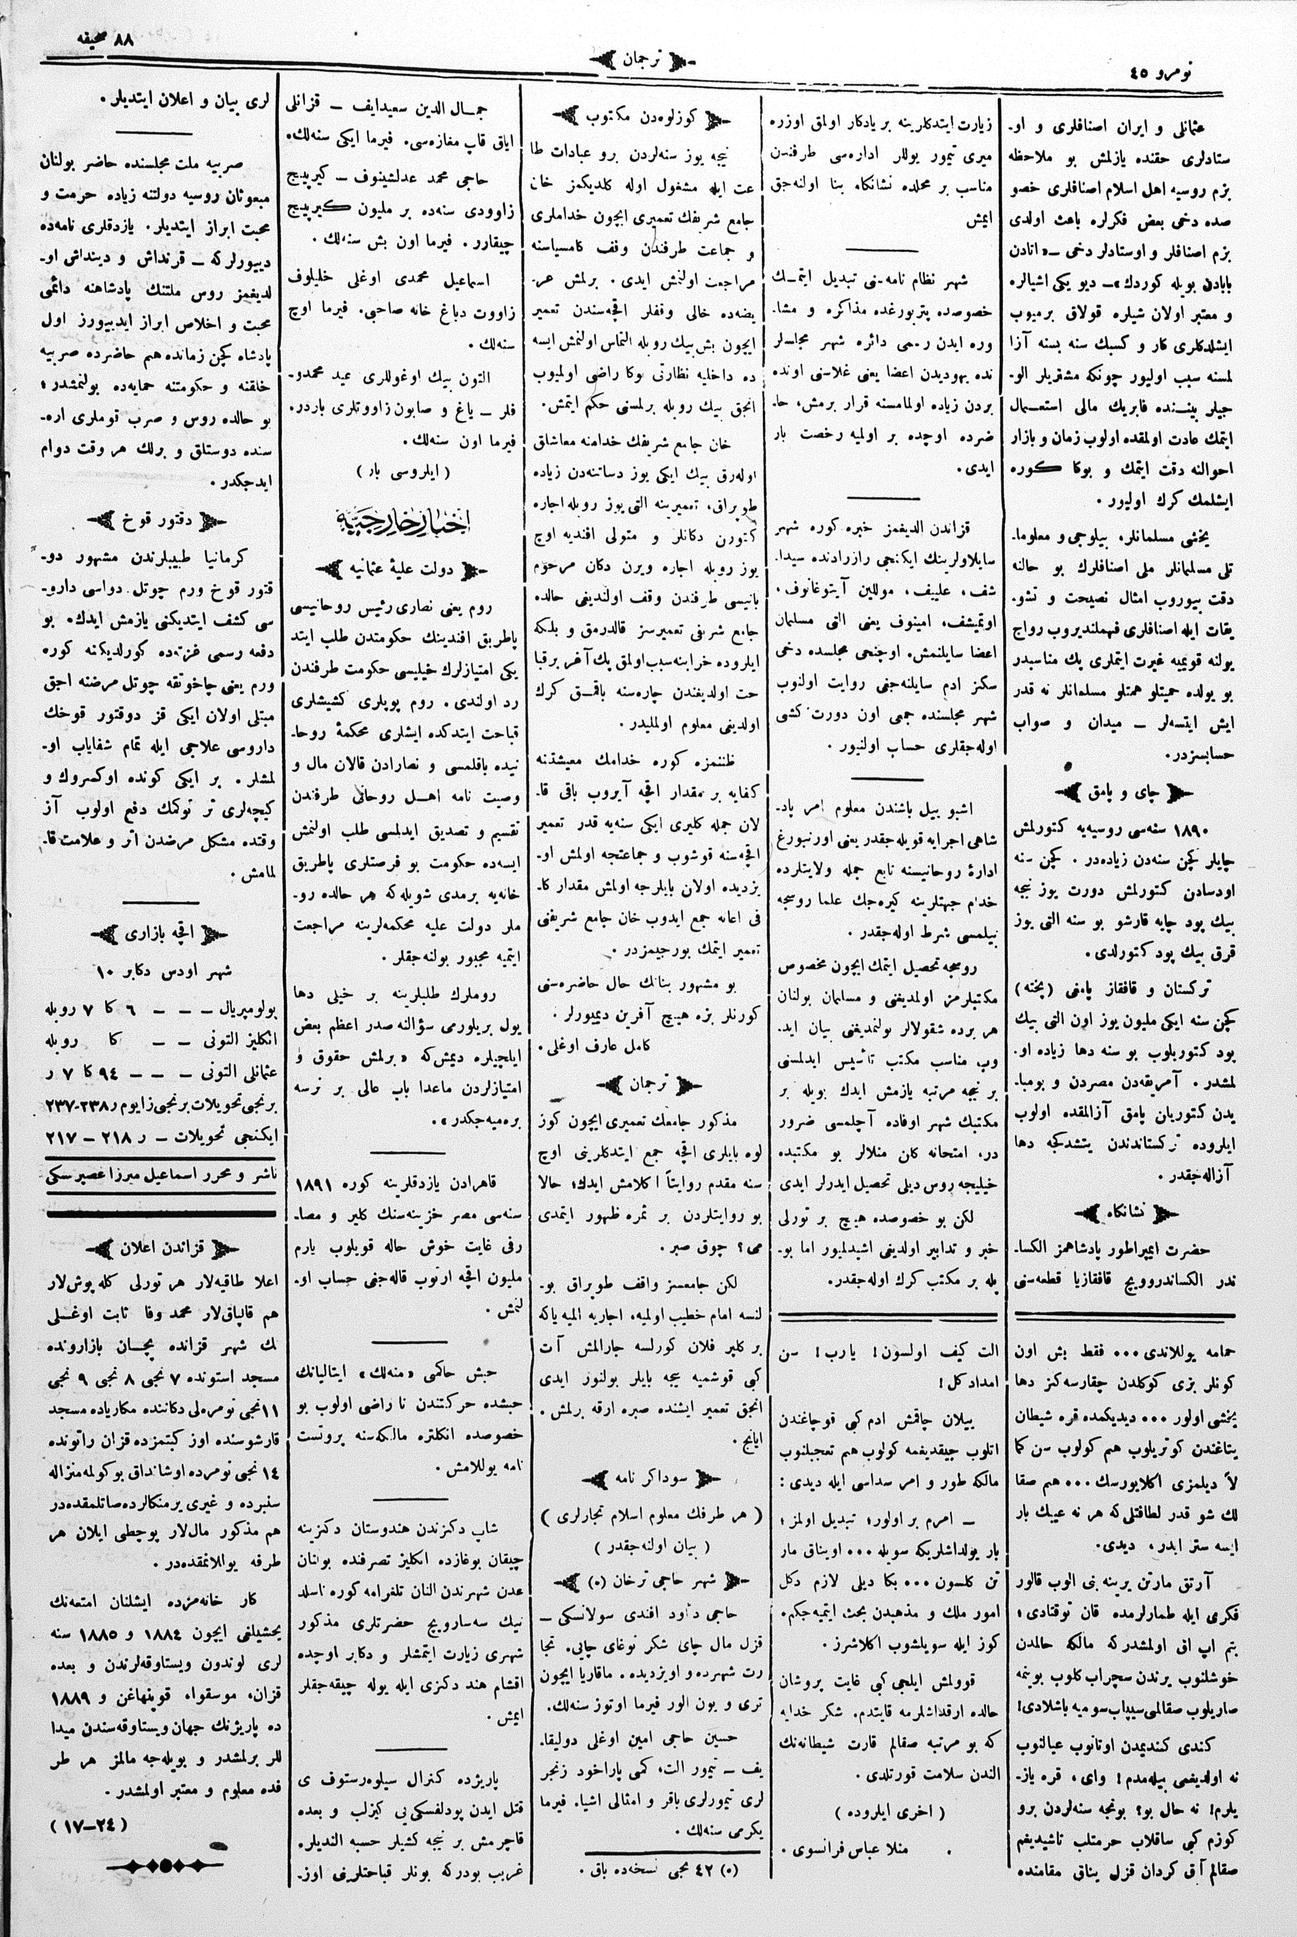 نومرو ٤٥
ترجمان
٨٨ صحیفه
عثمانلی و ایران اصنافلری و او-
ستادلری حقنده یازلمش بو ملاحظه
بزم روسیه اهل اسلام اصنافلری خصو
صنده دخی بعض فکرلره باعث اولدی
بزم اصنافلر و اوستادلر دخی – «انادن
بابادن بویله کوردك» – دیو یکی اشیالره
و معتبر اولان شیلره قولاق برمیوب
ایشلدکلری کار و کسبك سنه بسنه آزا
لمسنه سبب اولیور چونکه مشتریلر الو-
جیلر بیننده فابریك مالی استعمال
ایتمك عادت اولمقده اولوب زمان و بازار
احوالنه دقت ایتمك و بوکا کوره
ایشلمك کرك اولیور.
یخشی مسلمانلر، بیلوجی و معلوما-
تلی مسلمانلر ملی اصنافلرك بو حالنه
دقت بیوروب امثال نصیحت و تشو-
یقات ایله اصنافلری فهملندیروب رواج
یولنه قویمیه غیرت ایتملری پك مناسبدر
بو یولده حمیتلو همتلو مسلمانلر نه قدر
ایش ایتسه‌لر – میدان و صواب
حسابسزدر.
چای و پامق
١٨٩٠ سنه‌سی روسیه‌یه کتورلمش
چایلر کچن سنه‌دن زیاده‌در. کچن سنه
اودسادن کتورلمش دورت یوز نیجه
بیك پود چایه قارشو بو سنه التی یوز
قرق بیك پود کتورلدی.
ترکستان و قافقاز پامغی (پخته)
کچن سنه ایکی ملیون یوز اون التی بیك
پود کتوریلوب بو سنه دها زیاده او-
لمشدر. آمریقه‌دن مصردن و بومبا-
یدن کتوریان پامق آزالمقده اولوب
ایلروده ترکستاندندن یتشدکجه دها
آزاله‌جقدر.
نشانکاه
حضرت ایمپراطور پادشاهمز الکسا-
ندر الکساندروویچ قافقازیا قطعه‌سنی
حمامه یوللاندی... فقط بش اون
کونلر بزی کوکلدن چقارسه‌کز دها
یخشی اولور... دیدیکمده قره شیطان
یتاغندن کوتریلوب هم کولوب سن کا
لاً دیلمزی اکلایورسك... هم صقا
لك شو قدر لطافتلی که هر نه عیبك بار
ایسه ستر ایدر، دیدی.
آرتق مارتن یرینه بنی الوب قالور
فکری ایله طمارلرمده قان توقتادی؛
یتم اپ اق اولمشدر که مالکه حالمدن
خوشلنوب یرندن سچراب کلوب بوینمه
صاریلوب صقالمی سیپاب سومیه باشلادی!
کندی کندیمدن اوتانوب عیالنوب
نه اولدیغمی بیله‌مدم! وای، قره یاز-
یلرم! نه حال بو؟ بونجه سنه‌لردن برو
کوزم کبی ساقلاب حرمتلب تاشیدیغم
صقالم آق کردان قزل یناقی مقامنده
زیارت ایتدکلرینه بر یادکار اولمق اوزره
میری تیمور یوللر اداره‌سی طرفندن
مناسب بر محلده نشانکاه بنا اوله‌جق
ایمش
شهر نظام نامه‌سنی تبدیل ایتمك
خصوصده پتربورغده مذاکره و مشا-
وره ایدن رسمی دائره شهر مجلسلر
نده یهودیدن اعضا یعنی غلاسنی اونده
بردن زیاده اولمامسنه قرار برمش، حا-
ضرده اوچده بر اولمیه رخصت بار
ایدی.
قزاندن الدیغمز خبره کوره شهر
سایلاولرینك ایکنجی رازرادنده سیدا-
شف، علییف، موللین آیتوغانوف،
اوتمیشف، امینوف یعنی التی مسلمان
اعضا سایلنمش. اوچنجی مجلسده دخی
سکز ادم سایلنه‌جغی روایت اولنوب
شهر مجلسنده جمعی اون دورت کشی
اوله‌جقلری حساب اولنیور.
اشبو ییل باشندن معلوم امر پاد-
شاهی اجرایه قویله جقدر یعنی اورنبورغ
ادارهٔ روحانیسنه تابع جمله ولایتلرده
خدام جهتلرینه کیره‌جك علما روسچه
بیلمسی شرط اوله‌جقدر.
روسچه تحصیل ایتمك ایچون مخصوص
مکتبلرمز اولمدیغنی و مسلمان بولنان
هر برده شقولالر بولنمدیغنی بیان اید-
وب مناسب مکتب تأسیس ایدلمسنی
بر نیجه مرتبه یازمش ایدك بویله بر
مکتبك شهر اوفاده آچلمسی ضرور
در، امتحانه کان منلالر بو مکتبده
خیلیجه روس دیلی تحصیل ایدرلر ایدی
لکن بو خصوصده هیچ بر تورلی
خبر و تدابیر اولدیغی اشیدلمیور اما بو-
یله بر مکتب کرك اوله‌جقدر.
الت کیف اولسون! یارب! سن
امداد کل!
ییلان چاقمش ادم کبی قوچاغندن
اتلوب چیقدیغمه کولوب هم تعجبلنوب
مالکه طور و امر سداسی ایله دیدی:
– امرم بر اولور؛ تبدیل اولمز؛
بار یولداشلریکه سویله... اویناق مار
تن کلسون... بکا دیلی لازم دکل
امور ملك و مذهبدن بحث ایتمیه جکم.
کوز ایله سویلشوب اکلاشرز.
قوولمش ایلجی کبی غایت پروشان
حالده ارقداشلرمه قایتدم. شکر خدایه
که بو مرتبه صقالم قارت شیطانه‌نك
الندن سلامت قورتلدی.
(اخری ایلروده)
منلا عباس فرانسوی.
کوزلوه‌دن مکتوب
نیجه یوز سنه‌لردن برو عبادات طا
عت ایله مشغول اوله کلدیکمز خان
جامع شریفك تعمیری ایچون خداملری
و جماعت طرفندن وقف کامسیاسنه
مراجعت اولنمش ایدی. برلمش عر-
یضه‌ده خالی وقفلر اقچه‌سندن تعمیر
ایچون بش بیك روبله التماس اولنمش ایسه
ده داخلیه نظارتی بوکا راضی اولمیوب
انجق بیك روبله برلمسنی حکم ایتمش.
خان جامع شریفك خدامنه معاشاق
اوله‌رق بیك ایکی یوز دساتنه‌دن زیاده
طوپراق، تعمیرینه التی یوز روبله اجاره
کتورن دکانلر و متولی افندیه اوچ
یوز روبله اجاره ویرن دکان مرحوم
بانیسی طرفندن وقف اولندیغی حالده
جامع شریفی تعمیرسز قالدرمق و بلکه
ایلروده خرابنه سبب اولمق پك آغر برقبا
حت اولدیغندن چاره‌سنه باقمق کرك
اولدیغی معلوم اولملیدر.
ظنمزه کوره خدامك معیشتنه
کفایه بر مقدار اقچه آیروب باقی قا-
لان جمله کلیری ایکی سنه‌یه قدر تعمیر
اقچه‌سنه قوشوب و جماعتجه اولمش او-
بزدیده اولان بایلرجه اولمش مقدار کا-
فی اعانه جمع ایدوب خان جامع شریفنی
تعمیر ایتمك بورجیمزدر.
بو مشهور بنانك حال حاضره‌سنی
کورنلر بزه هیچ آفرین دیمیورلر.
کامل عارف اوغلی.
ترجمان
مذکور جامعك تعمیری ایچون کوز
لوه بایلری اقچه جمع ایتدکلرینی اوچ
سنه مقدم روایتاً اکلامش ایدك؛ حالا
بو روایتلردن بر ثمره ظهور ایتمدی
می؟ چوق صبر.
لکن جامعسز واقف طوپراق بو-
لنسه امام خطیب اولمیه، اجاریه المیه یا که
بر کلیر فلان کورلسه جارالمش آت
کبی قوشمیه یجه بایلر بولنور ایدی
انجق تعمیر ایشنده صبره ارقه برلمش.
ایایح.
سوداکر نامه
(هر طرفك معلوم اسلام تجارلری)
(بیان اوله‌جقدر)
شهر حاجی ترخان (٥)
حاجی داود افندی سولانسکی –
قزل مال چای شکر نوغای چاپی. تجا
رت شهرده و اویزدیده. ماقاریا ایچون
تری و یون الور فیرما اوتوز سنه‌لك.
حسین حاجی امین اوغلی دولیقا-
یف – تیمور الت، کمی پاراخود زنجر
لری تیمورلری باقر و امثالی اشیا. فیرما
یکرمی سنه‌لك.
(٥) ٤٢ نجی نسخه‌ده باق.
جمال الدین سعیدایف – قزانلی
ایاق قاپ مغازه‌سی. فیرما ایکی سنه‌لك.
حاجی محمد عدلشینوف – کیرپیج
زاوودی سنه‌ده بر ملیون کیرپیج
چیقارر. فیرما اون بش سنه‌لك.
اسماعیل محمدی اوغلی خلیلوف
زاووت دباغ خانه صاحبی. فیرما اوچ
سنه‌لك.
التون بیك اوغوللری عید محمدو-
فلر – یاغ و صابون زاووتلری باردر.
فیرما اون سنه‌لك.
(ایلروسی بار)
اخبار خارجیه
دولت علیهٔ عثمانیه
روم یعنی نصاری رئیس روحانیسی
پاطریق افندینك حکومتدن طلب ایتد
یکی امتیازلرك خیلیسی حکومت طرفندن
رد اولندی. روم پوپلری کشیشلری
قباحت ایتدکده ایشلری محکمهٔ روحا-
نیده باقلمسی و نصارادن قالان مال و
وصیت نامه اهل روحانی طرفندن
تقسیم و تصدیق ایدلمسی طلب اولنمش
ایسه‌ده حکومت بو فرصتلری پاطریق
خانه‌یه برمدی شویله که هر حالده رو-
ملر دولت علیه محکمه‌لرینه مراجعت
ایتمیه مجبور بولنه جقلر.
روملرك طلبلرینه بر خیلی دها
یول بریلورمی سؤالنه صدر اعظم بعض
ایلچیلره دیمش که «برلمش حقوق و
امتیازلردن ماعدا باب عالی بر نرسه
بره‌میه‌جکدر».
قاهرادن یازدقلرینه کوره ١٨٩١
سنه‌سی مصر خزینه‌سنك کلیر و مصا-
رفی غایت خوش حاله قویلوب یارم
ملیون اقچه ارتوب قاله‌جغی حساب او-
لنمش.
حبش حاکمی «منه‌لك» ایتالیانك
حبشده حرکتندن نا راضی اولوب بو
خصوصده انکلتره مالکه‌سنه پروتست
نامه یوللامش.
شاپ دکزندن هندوستان دکزینه
چیقان بوغازده انکلیز تصرفنده بولنان
عدن شهرندن النان تلغرامه کوره ناسلد
نیك سه‌سارویچ حضرتلری مذکور
شهری زیارت ایتمشلر و دکابر اوچده
اقشام هند دکزی ایله یوله چیقه‌جقلر
ایمش.
پاریژده کنرال سیلوه‌رستوف ی
قتل ایدن پودلفسکی یی کیزلب و بعده
قاچرمش بر نیجه کشیلر حبسه الندیلر.
غریب بودر که بونلر قباحتلرینی اوز-
لری بیان و اعلان ایتدیلر.
صربیه ملت مجلسنده حاضر بولنان
مبعوثان روسیه دولتنه زیاده حرمت و
محبت ابراز ایتدیلر. یازدقلری نامه‌ده
دییورلر که – قرنداش و دینداش او-
لدیغمز روس ملتنك پادشاهنه دائمی
محبت و اخلاص ابراز ایدییورز اول
پادشاه کچن زمانده هم حاضرده صربیه
خلقنه و حکومتنه حمایه‌ده بولنمشدر؛
بو حالده روس و صرب قوملری اره-
سنده دوستلق و برلك هر وقت دوام
ایدجکدر.
دقتور قوخ
کرمانیا طبیبلرندن مشهور دو-
قتور قوخ ورم چوتل دواسی دارو-
سی کشف ایتدیکنی یازمش ایدك. بو
دفعه رسمی غزته‌ده کورلدیکنه کوره
ورم یعنی چاخوتقه چوتل مرضنه اجق
مبتلی اولان ایکی قز دوقتور قوخك
داروسی علاجی ایله تمام شفایاب او-
لمشلر. بر ایکی کونده اوکسروك و
کیچه‌لری تر توکمك دفع اولوب آز
وقتده مشکل مرضدن اثر و علامت قا-
لمامش.
اقچه بازاری
شهر اودس دکابر ١٠
پولومپریال – – – ٦ کا ٧ روبله
انکلیز التونی – – کا روبله
عثمانلی التونی – – – ٩٤ کا ٧ ر
برنجی تحویلات برنجی زایوم ر ٢٣٨-٢٣٧
ایکنجی تحویلات – ر ٢١٨ – ٢١٧
ناشر و محرر اسماعیل میرزا غصپرنسکی
قزاندن اعلان
اعلا طاقیه‌لار هر تورلی کله پوش‌لار
هم قالپاق‌لار محمد وفا ثابت اوغلی
نك شهر قزانده پچان بازارونده
مسجد استونده ٧ نجی ٨ نجی ٩ نجی
١١ نجی نومره‌لی دکاننده مکاریاده مسجد
قارشوسنده اوز کبتمزده قزان راتونده
١٤ نجی نومرده اوشانداق بوکولمه منزاله
سنبرده و غیری یرمنکالرده صاتلمقده‌در
هم مذکور مال‌لار پوچطی ایلان هر
طرفه یوللانمقده‌در.
کار خانه‌مزده ایشلنان امتعه‌نك
یخشیلغی ایچون ١٨٨٤ و ١٨٨٥ سنه
لری لوندون ویستاوقه‌لرندن و بعده
قزان، موسقواء قوپنهاغن و ١٨٨٩
ده پاریژنك جهان ویستاوقه‌سندن میدا
للر برلمشدر و بویله‌جه مالمز هر طر
فده معلوم و معتبر اولمشدر.
(١٧–٢٤)